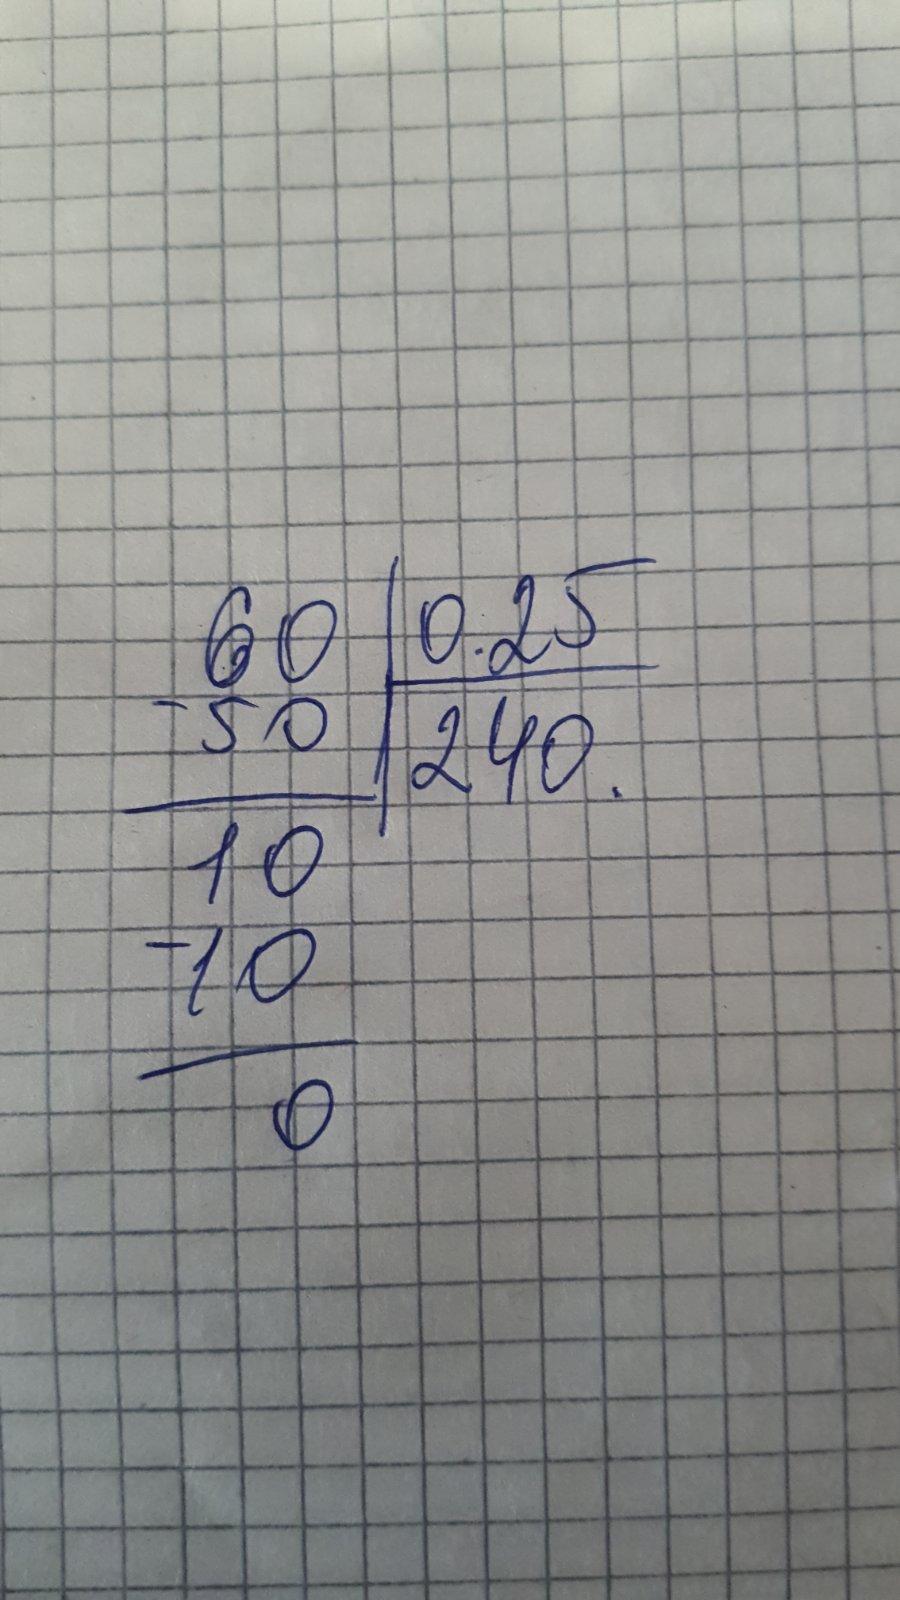 60 0.25
-50 240.
10
-10
0